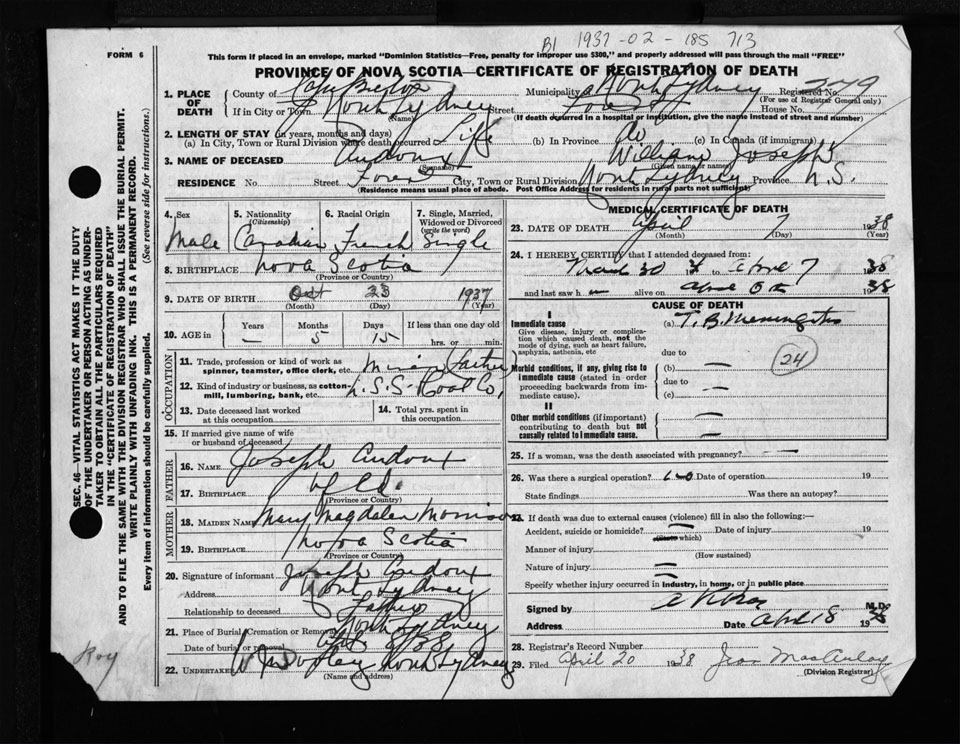 B1 1937-02-185 713
FORM 6
This form if placed in an envelope, marked "Dominion Statistics—Free, penalty for improper use $300," and properly addressed will pass through the mail "FREE"
PROVINCE OF NOVA SCOTIA—CERTIFICATE OF REGISTRATION OF DEATH
1. PLACE OF DEATH County of Cape Breton Municipality North Sydney Registered No. 279
(For use of Registrar General only)
If in City or Town North Sydney Street Forest St House No.
(Name)
(If death occurred in a hospital or institution, give the name instead of street and number)
2. LENGTH OF STAY (in years, months and days)
(a) In City, Town or Rural Division where death occurred Life (b) In Province do (c) In Canada (if immigrant)
3. NAME OF DECEASED Audoux William Joseph
(Surname) (Given name or names)
RESIDENCE No. Street Forest City, Town or Rural Division North Sydney Province N.S.
(Residence means usual place of abode. Post Office Address for residents in rural parts not sufficient)
4. Sex Male
5. Nationality (Citizenship) Canadian
6. Racial Origin French
7. Single, Married, Widowed or Divorced (write the word) Single
8. BIRTHPLACE Nova Scotia
(Province or Country)
9. DATE OF BIRTH Oct 23 1937
(Month) (Day) (Year)
10. AGE in Years — Months 5 Days 15 If less than one day old hrs. or min.
OCCUPATION
11. Trade, profession or kind of work as spinner, teamster, office clerk, etc. Miner (Father)
12. Kind of industry or business, as cotton-mill, lumbering, bank, etc. N.S.S. Coal Co.
13. Date deceased last worked at this occupation
14. Total yrs. spent in this occupation
15. If married give name of wife or husband of deceased
FATHER
16. NAME Joseph Audoux
17. BIRTHPLACE Nfld.
(Province or Country)
MOTHER
18. MAIDEN NAME Mary Magdalen Morrison
19. BIRTHPLACE Nova Scotia
(Province or Country)
20. Signature of informant Joseph Audoux
Address North Sydney
Relationship to deceased Father
21. Place of Burial, Cremation or Removal North Sydney
Date of burial or removal
22. UNDERTAKER North Sydney
(Name and address)
MEDICAL CERTIFICATE OF DEATH
23. DATE OF DEATH April 7 1938
(Month) (Day) (Year)
24. I HEREBY CERTIFY that I attended deceased from:
March 30 to April 7 1938
and last saw h alive on April 1938
CAUSE OF DEATH
I
Immediate cause (a) T.B. Meningitis
Give disease, injury or complication which caused death, not the mode of dying, such as heart failure, asphyxia, asthenia, etc
24
due to
Morbid conditions, if any, giving rise to immediate cause (stated in order proceeding backwards from immediate cause) (b) —
due to —
(c)
II
Other morbid conditions (if important) contributing to death but not causally related to immediate cause. —
25. If a woman, was the death associated with pregnancy? —
26. Was there a surgical operation? no Date of operation 19
State findings Was there an autopsy?
27. If death was due to external causes (violence) fill in also the following:—
Accident, suicide or homicide? — Date of injury 19
(State which)
Manner of injury
(How sustained)
Nature of injury —
Specify whether injury occurred in industry, in home, or in public place
Signed by M.D.
Address Date April 8 1938
28. Registrar's Record Number
29. Filed April 20 1938
(Division Registrar)
SEC. 46—VITAL STATISTICS ACT MAKES IT THE DUTY OF THE UNDERTAKER OR PERSON ACTING AS UNDERTAKER TO OBTAIN ALL THE PARTICULARS REQUIRED IN THE "CERTIFICATE OF REGISTRATION OF DEATH"
AND TO FILE THE SAME WITH THE DIVISION REGISTRAR WHO SHALL ISSUE THE BURIAL PERMIT.
WRITE PLAINLY WITH UNFADING INK. THIS IS A PERMANENT RECORD.
Every item of information should be carefully supplied. (See reverse side for instructions.)
Roy